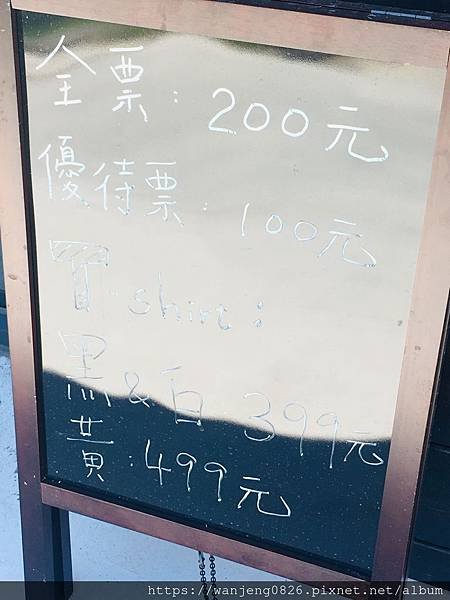 全票：200元
優待票：100元
買T-shirt：
黑&白 399元
黃：499元
https://wanjeng0826.pixnet.net/album